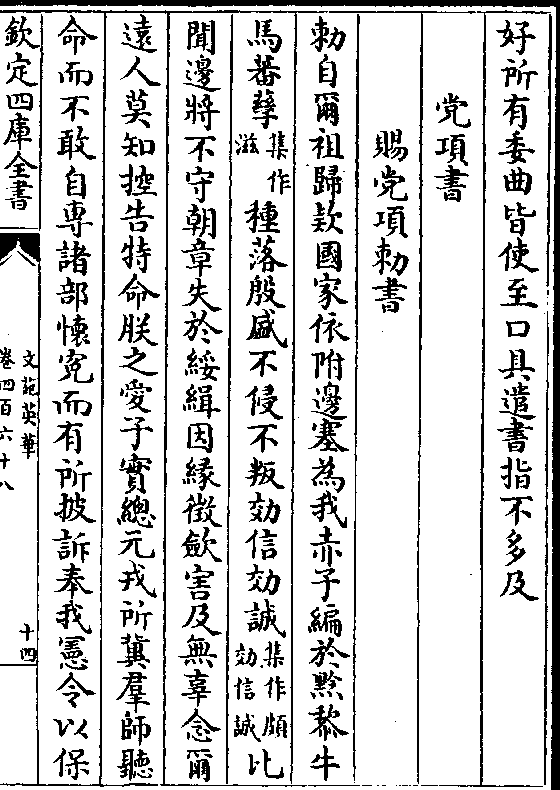 好所有委曲皆使至口具遣書指不多及
党項書
賜党項勅書
勅自爾祖歸欵國家依附邊塞為我赤子編於黔黎牛
馬蕃孳集作滋種落殷盛不侵不叛効信効誠集作頗効信誠比
聞邊將不守朝章失於綏緝因緣徵歛害及無辜念爾
遠人莫知控告特命朕之愛子實總元戎所冀羣師聽
命而不敢自専諸部懷寃而有所披訴奉我憲令以保
欽定四庫全書
文苑英華
卷四百六十八
十四